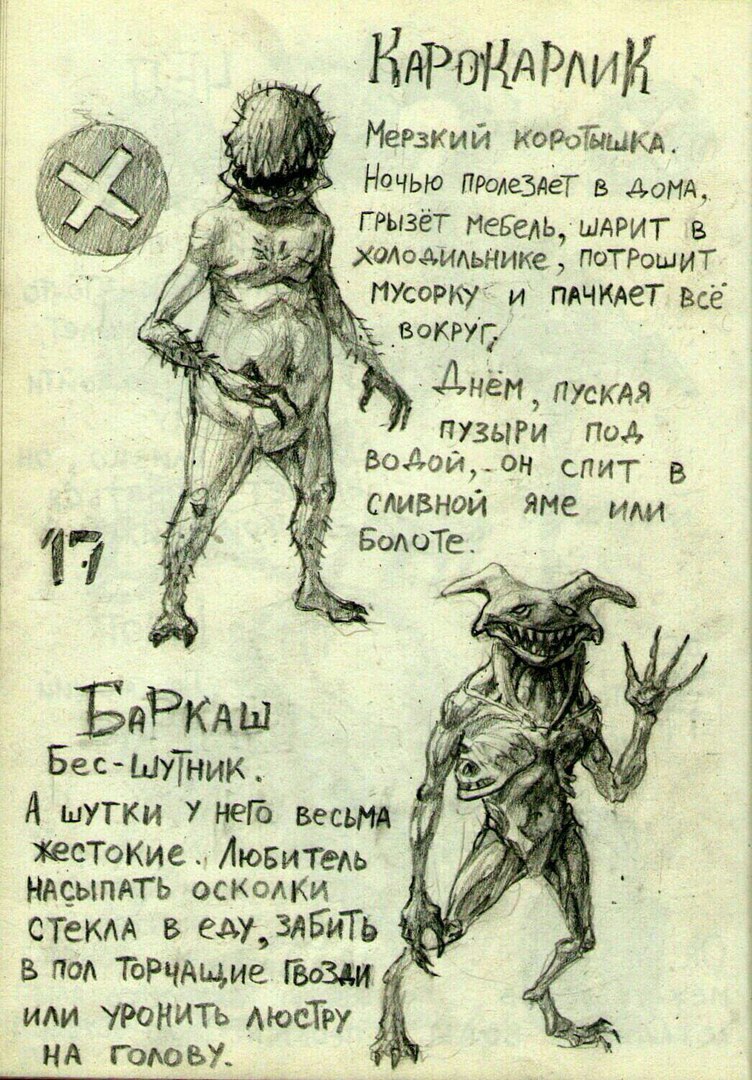 КАРОКАРЛИК
МЕРЗКИЙ КОРОТЫШКА.
НОЧЬЮ ПРОЛЕЗАЕТ В ДОМА,
ГРЫЗЁТ МЕБЕЛЬ, ШАРИТ В
ХОЛОДИЛЬНИКЕ, ПОТРОШИТ
МУСОРКУ И ПАЧКАЕТ ВСЁ
ВОКРУГ.
ДНЁМ, ПУСКАЯ
ПУЗЫРИ ПОД
ВОДОЙ, ОН СПИТ В
СЛИВНОЙ ЯМЕ ИЛИ
БОЛОТЕ.
17
БАРКАШ
БЕС-ШУТНИК.
А ШУТКИ У НЕГО ВЕСЬМА
ЖЕСТОКИЕ. ЛЮБИТЕЛЬ
НАСЫПАТЬ ОСКОЛКИ
СТЕКЛА В ЕДУ, ЗАБИТЬ
В ПОЛ ТОРЧАЩИЕ ГВОЗДИ
ИЛИ УРОНИТЬ ЛЮСТРУ
НА ГОЛОВУ.